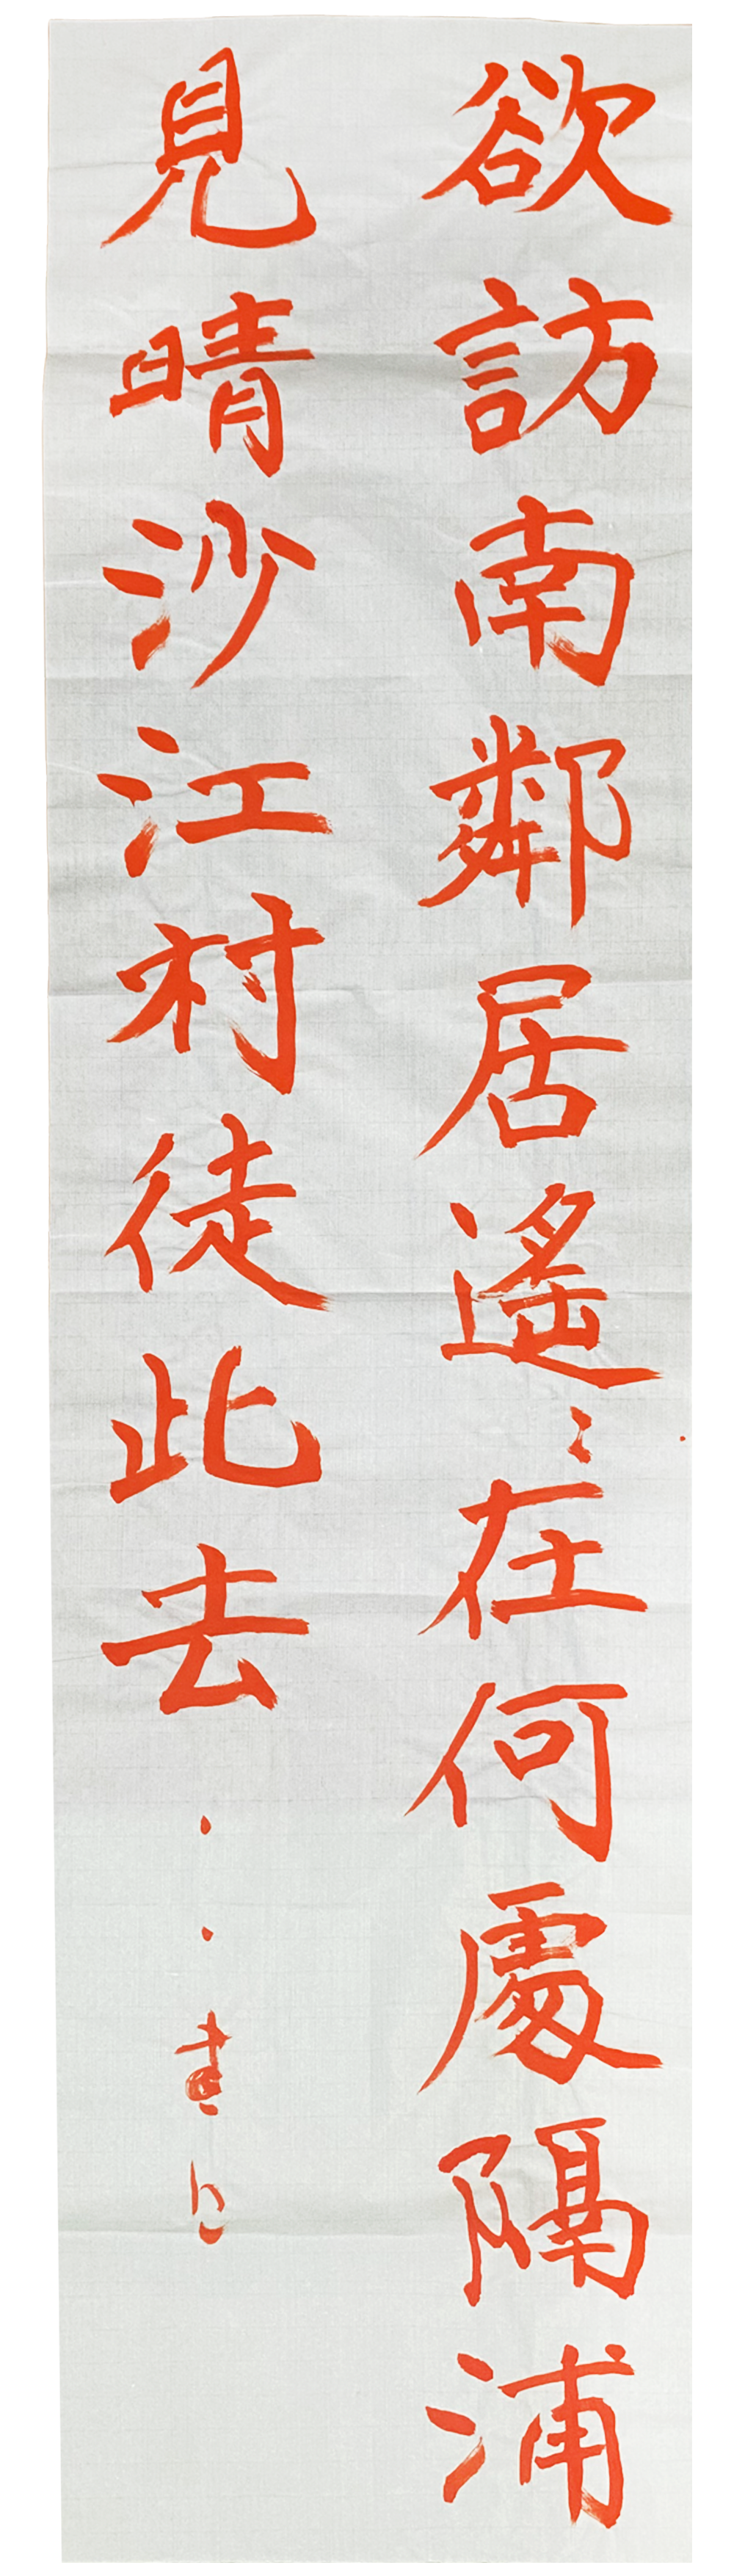 欲訪南鄰居遙〻在何處隔浦
見晴沙江村徒此去・・書